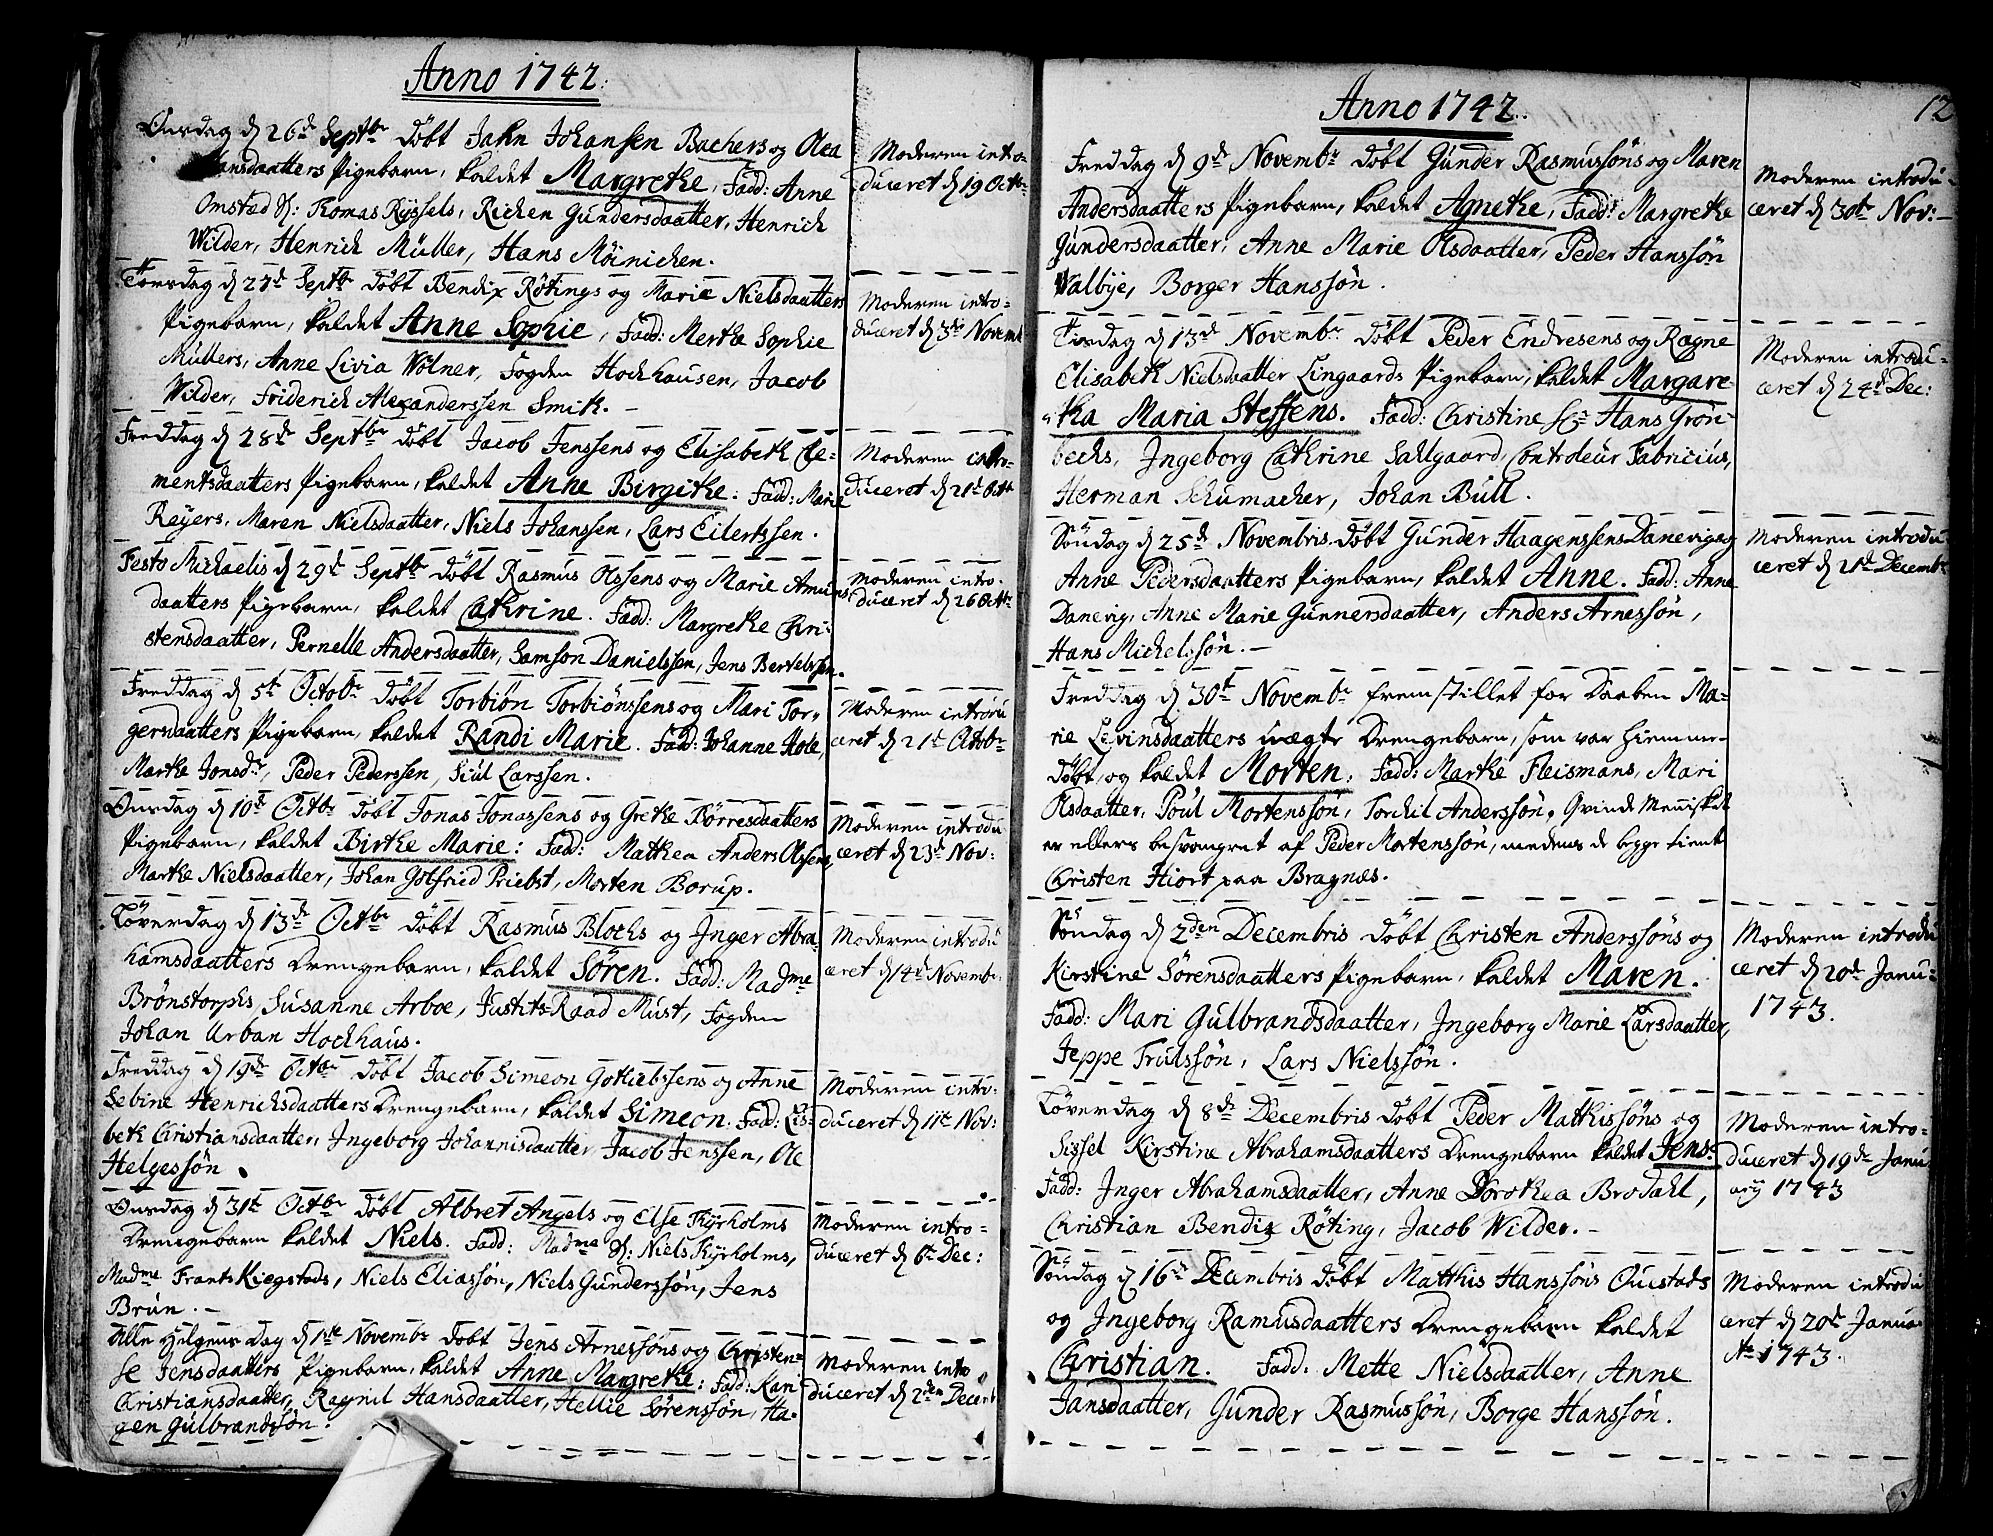 Anno 1742.
Onsdag d 26de Septbr döbt Jahn Johansen Bachers og Olea
Hansdaatters Pigebarn, kaldet Margrethe, Fadd: Anne
Omsted Sl: Thomas Ryssels, Richen Gundersdaatter, Henrich
Wilder, Henrich Müller, Hans Möinichen.
Moderen intro-
duceret d 19 Octbr
Torsdag d 27de Septbr döbt Bendix Rötings og Marie Nielsdaatters
Pigebarn, kaldet Anne Sophie, Fadd: Merthe Sophie
Müllers, Anne Livia Wölner, Fogden Hochhausen, Jacob
Wilder, Friderich Alexanderssen Smith.
Moderen intro-
duceret d 3de Novemb
Freddag d 28de Septbr döbt Jacob Jenssens og Elisabeth Cle-
mentsdaatters Pigebarn, kaldet Anne Birgithe. Fadd: Marie
Reyers, Maren Nielsdaatter, Niels Johanssen, Lars Eilertssen.
Moderen intro-
duceret d 21de Octbr
Festo Michaelis d 29de Septbr döbt Rasmus Olssens og Marie Amunds
daatters Pigebarn, kaldet Cathrine. Fadd: Margrethe Chri-
stensdaatter, Pernelle Andersdaatter, Samson Danielssen, Jens Bertelssen.
Moderen intro-
duceret d 26 Octbr
Freddag d 5te Octobr döbt Torbiön Torbiönssens og Mari Tor-
gersdaatters Pigebarn, kaldet Randi Marie. Fadd: Johanne Hole,
Marthe Jonsdr, Peder Pederssen, Siul Larssen.
Moderen introdu
ceret d 21de Octobr
Onsdag d 10de Octbr döbt Jonas Jonassens og Grethe Börresdaatters
Pigebarn, kaldet Birthe Marie: Fadd: Mathea Anders Olssens,
Marthe Nielsdaatter, Johan Gotfried Priebst, Morten Borup.
Moderen introdu
ceret d 23de Nov:
Löverdag d 13de Octbr döbt Rasmus Blochs og Inger Abra-
hamsdaatters Drengebarn, kaldet Sören. Fadd: Madme
Brönstorphs, Susanne Arboe, Justits-Raad Must, Fogden
Johan Urban Hochhaus.
Moderen introdu
ceret d 14de Novembr
Freddag d 19de Octbr döbt Jacob Simeon Gotliebssens og Anne
Sebine Henrichsdaatters Drengebarn, kaldet Simeon. Fadd: Lis-
beth Christiansdaatter, Ingeborg Johannisdaatter, Jacob Jenssen, Ole
Helgessön.
Moderen intro-
duceret d 11te Nov:
Onsdag d 31te Octbr döbt Albret Angels og Else Kyrholms
Drengebarn kaldet Niels. Fadd: Madme Sl: Niels Kyrholms,
Madme Frants Kiegstads, Niels Eliassön, Niels Gunderssön, Jens
Brün.
Moderen intro-
duceret d 6te Dec:
Alle Helgens Dag d 1ste Novembr döbt Jens Arnessöns og Christen-
se Jensdaatters Pigebarn, kaldet Anne Margrethe: Fadd: Kari
Christiansdaatter, Ragnil Hansdaatter, Hellie Sörenssön, Ha-
gen Gulbrandsön.
Moderen intro
duceret d 2den Decemb
12
Anno 1742.
Freddag d 9de Novembr döbt Gunder Rasmussöns og Maren
Andersdaatters Pigebarn, kaldet Agnethe, Fadd: Margrethe
Gundersdaatter, Anne Marie Olsdaatter, Peder Hanssön
Walbye, Borger Hanssön.
Moderen introdu-
ceret d 30te Nov:
Tirsdag d 13de Novembr döbt Peder Endresens og Ragne
Elisabeth Nielsdaatter Lingaards Pigebarn, kaldet Margare-
tha Maria Steffens. Fadd: Christine Sl: Hans Grön-
bechs, Ingeborg Cathrine Sahlgaard, Controleur Fabricius,
Herman Schumacher, Johan Bull.
Moderen introdu-
ceret d 24de Dec:
Söndag d 25de Novembris döbt Gunder Haagenssens Danevig og
Anne Pedersdaatters Pigebarn, kaldet Anne. Fadd: Anne
Danevig, Anne Marie Gunnersdaatter, Anders Arnessön,
Hans Michelssön.
Moderen introdu
ceret d 21de Decembr
Freddag d 30te Novembr fremstillet for Daaben Ma-
rie Levinsdaatters uægte Drengebarn, som var hiemme-
döbt, og kaldet Morten: Fadd: Marthe Fleismans, Mari
Olsdaatter, Poul Mortenssön, Torchil Anderssön. Qvinde Mennisket
er ellers besvangret af Peder Mortenssön, medens de begge tiente
Christen Hiort paa Bragnæs.
Söndag d 2den Decembris döbt Christen Anderssöns og
Kirstine Sörensdaatters Pigebarn, kaldet Maren.
Fadd: Mari Gulbrandsdaatter, Ingeborg Marie Larsdaatter,
Jeppe Trulssön, Lars Nielssön.
Moderen introdu
ceret d 20de Janu-
1743.
Löverdag d 8de Decembris döbt Peder Mathissöns og
Sissel Kirstine Abrahamsdaatters Drengebarn kaldet Jens.
Fadd: Inger Abrahamsdaatter, Anne Dorothea Brodahl,
Christian Bendix Röting, Jacob Wilder.
Moderen intro-
duceret d 19de Janu
ary 1743
Söndag d 16de Decembris döbt Matthis Hanssöns Ouestads
og Ingeborg Ramusdaatters Drengebarn kaldet
Christian. Fadd: Mette Nielsdaatter, Anne
Jansdaatter, Gunder Rasmussön, Borge Hanssön.
Moderen introdu
ceret d 20de Janua
Ao 1743.